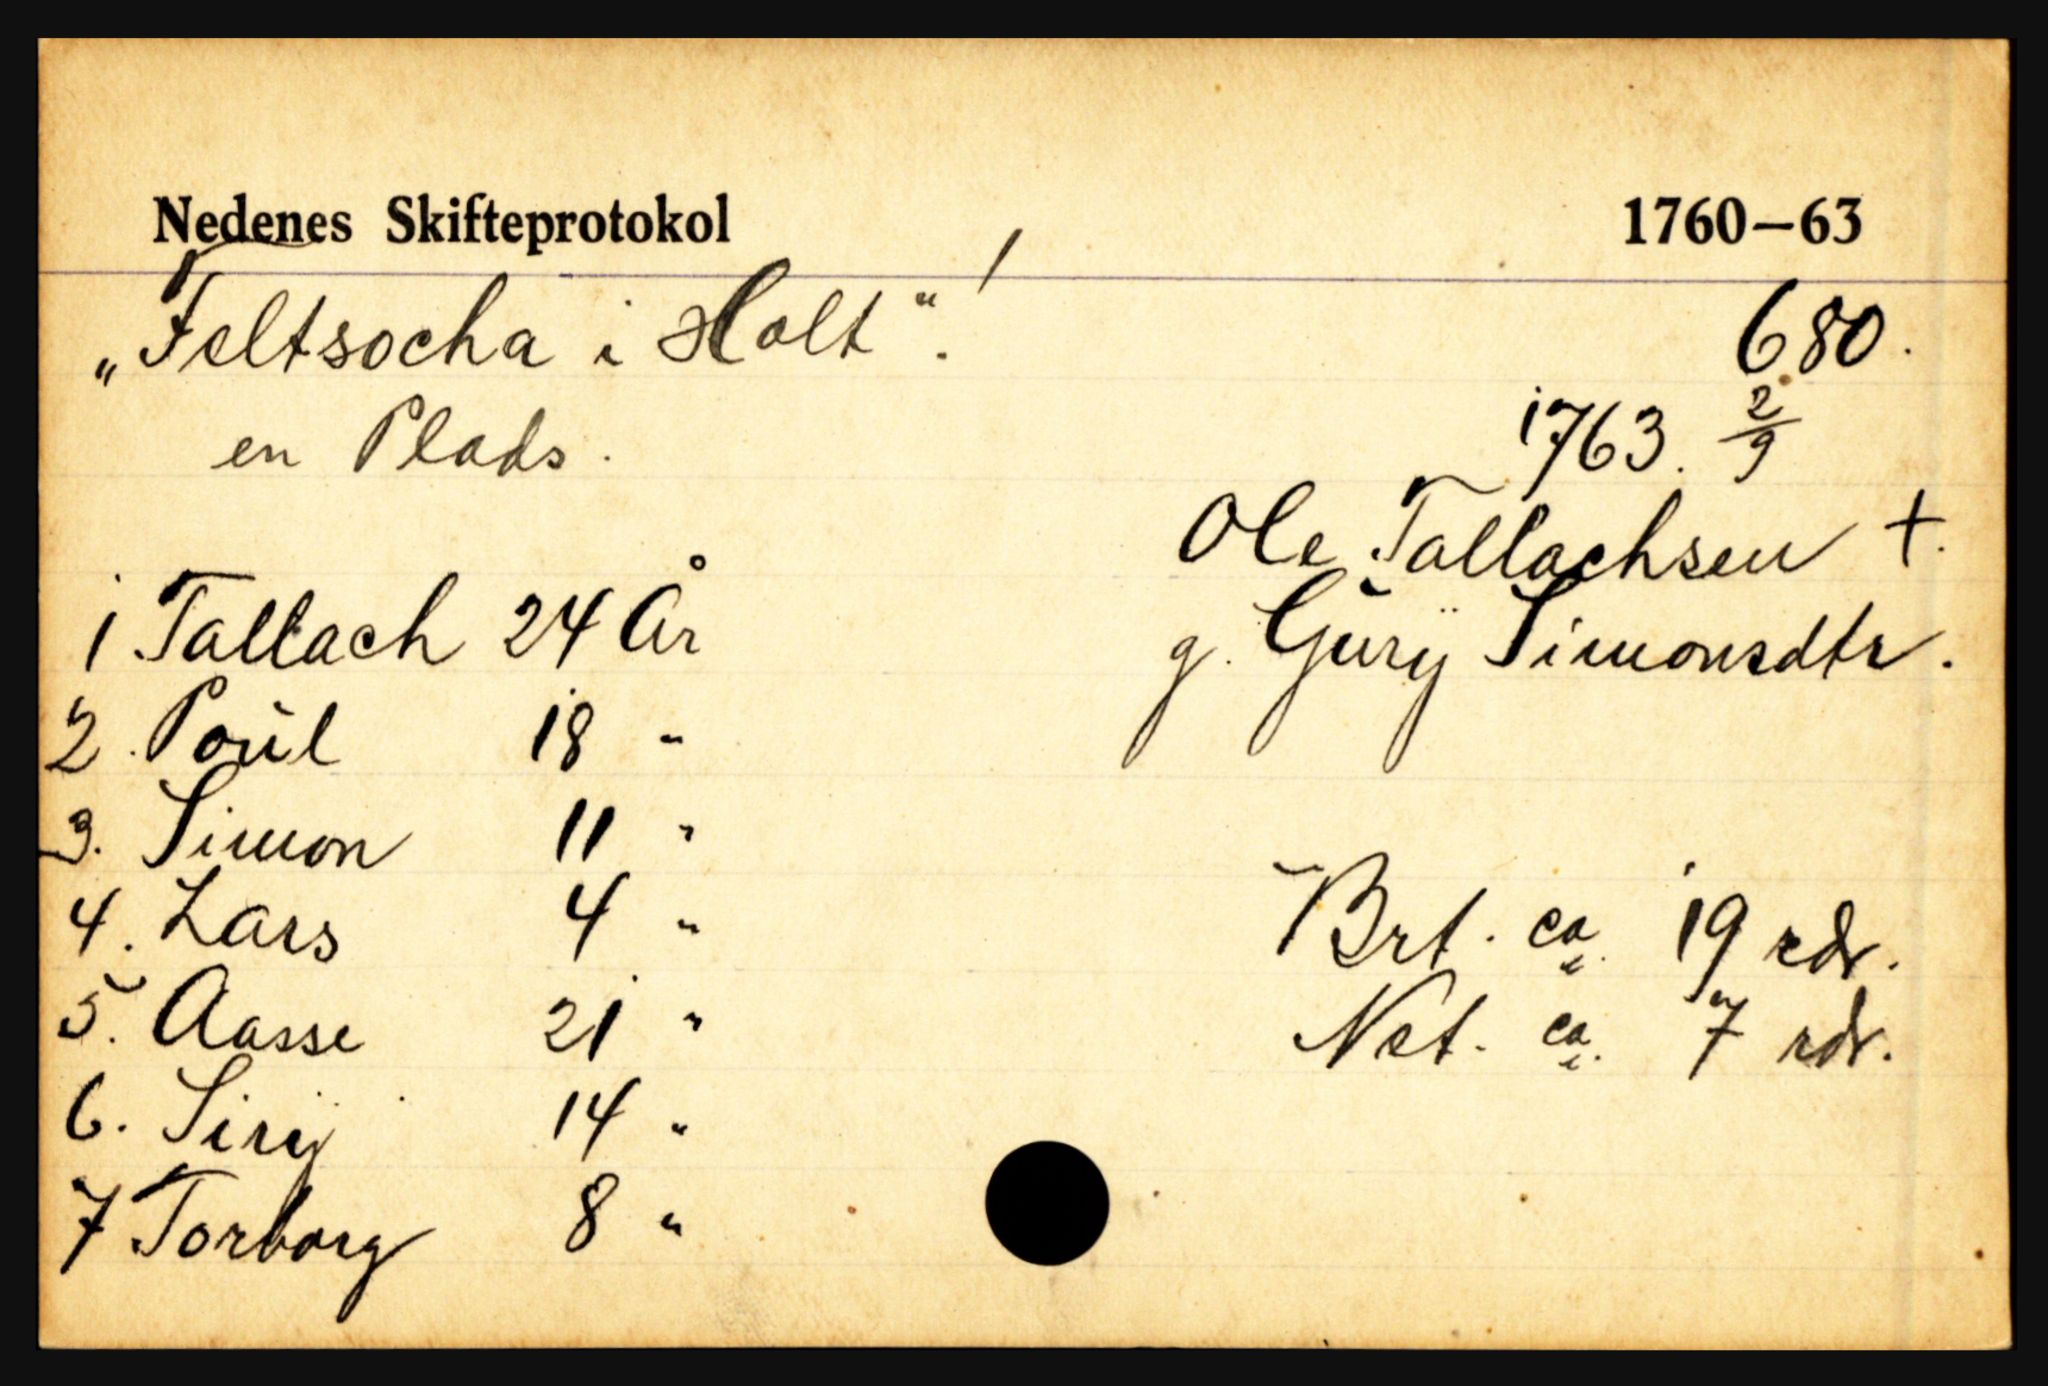 Nedenes Skifteprotokol 1760—63
„Feltsocha i Holt“!
680.
en Plads.
1763. 2/9
Ole Tallachsen †.
g. Gŭrÿ Simonsdtr.
1 Tallach 24 År
2. Poŭl 18 "
3. Simon 11 "
4. Lars 4 "
5. Aasse 21 "
6. Sirÿ 14 "
7 Torborg 8 "
Brt. ca. 19 rdr.
Net. ca. 7 rdr.